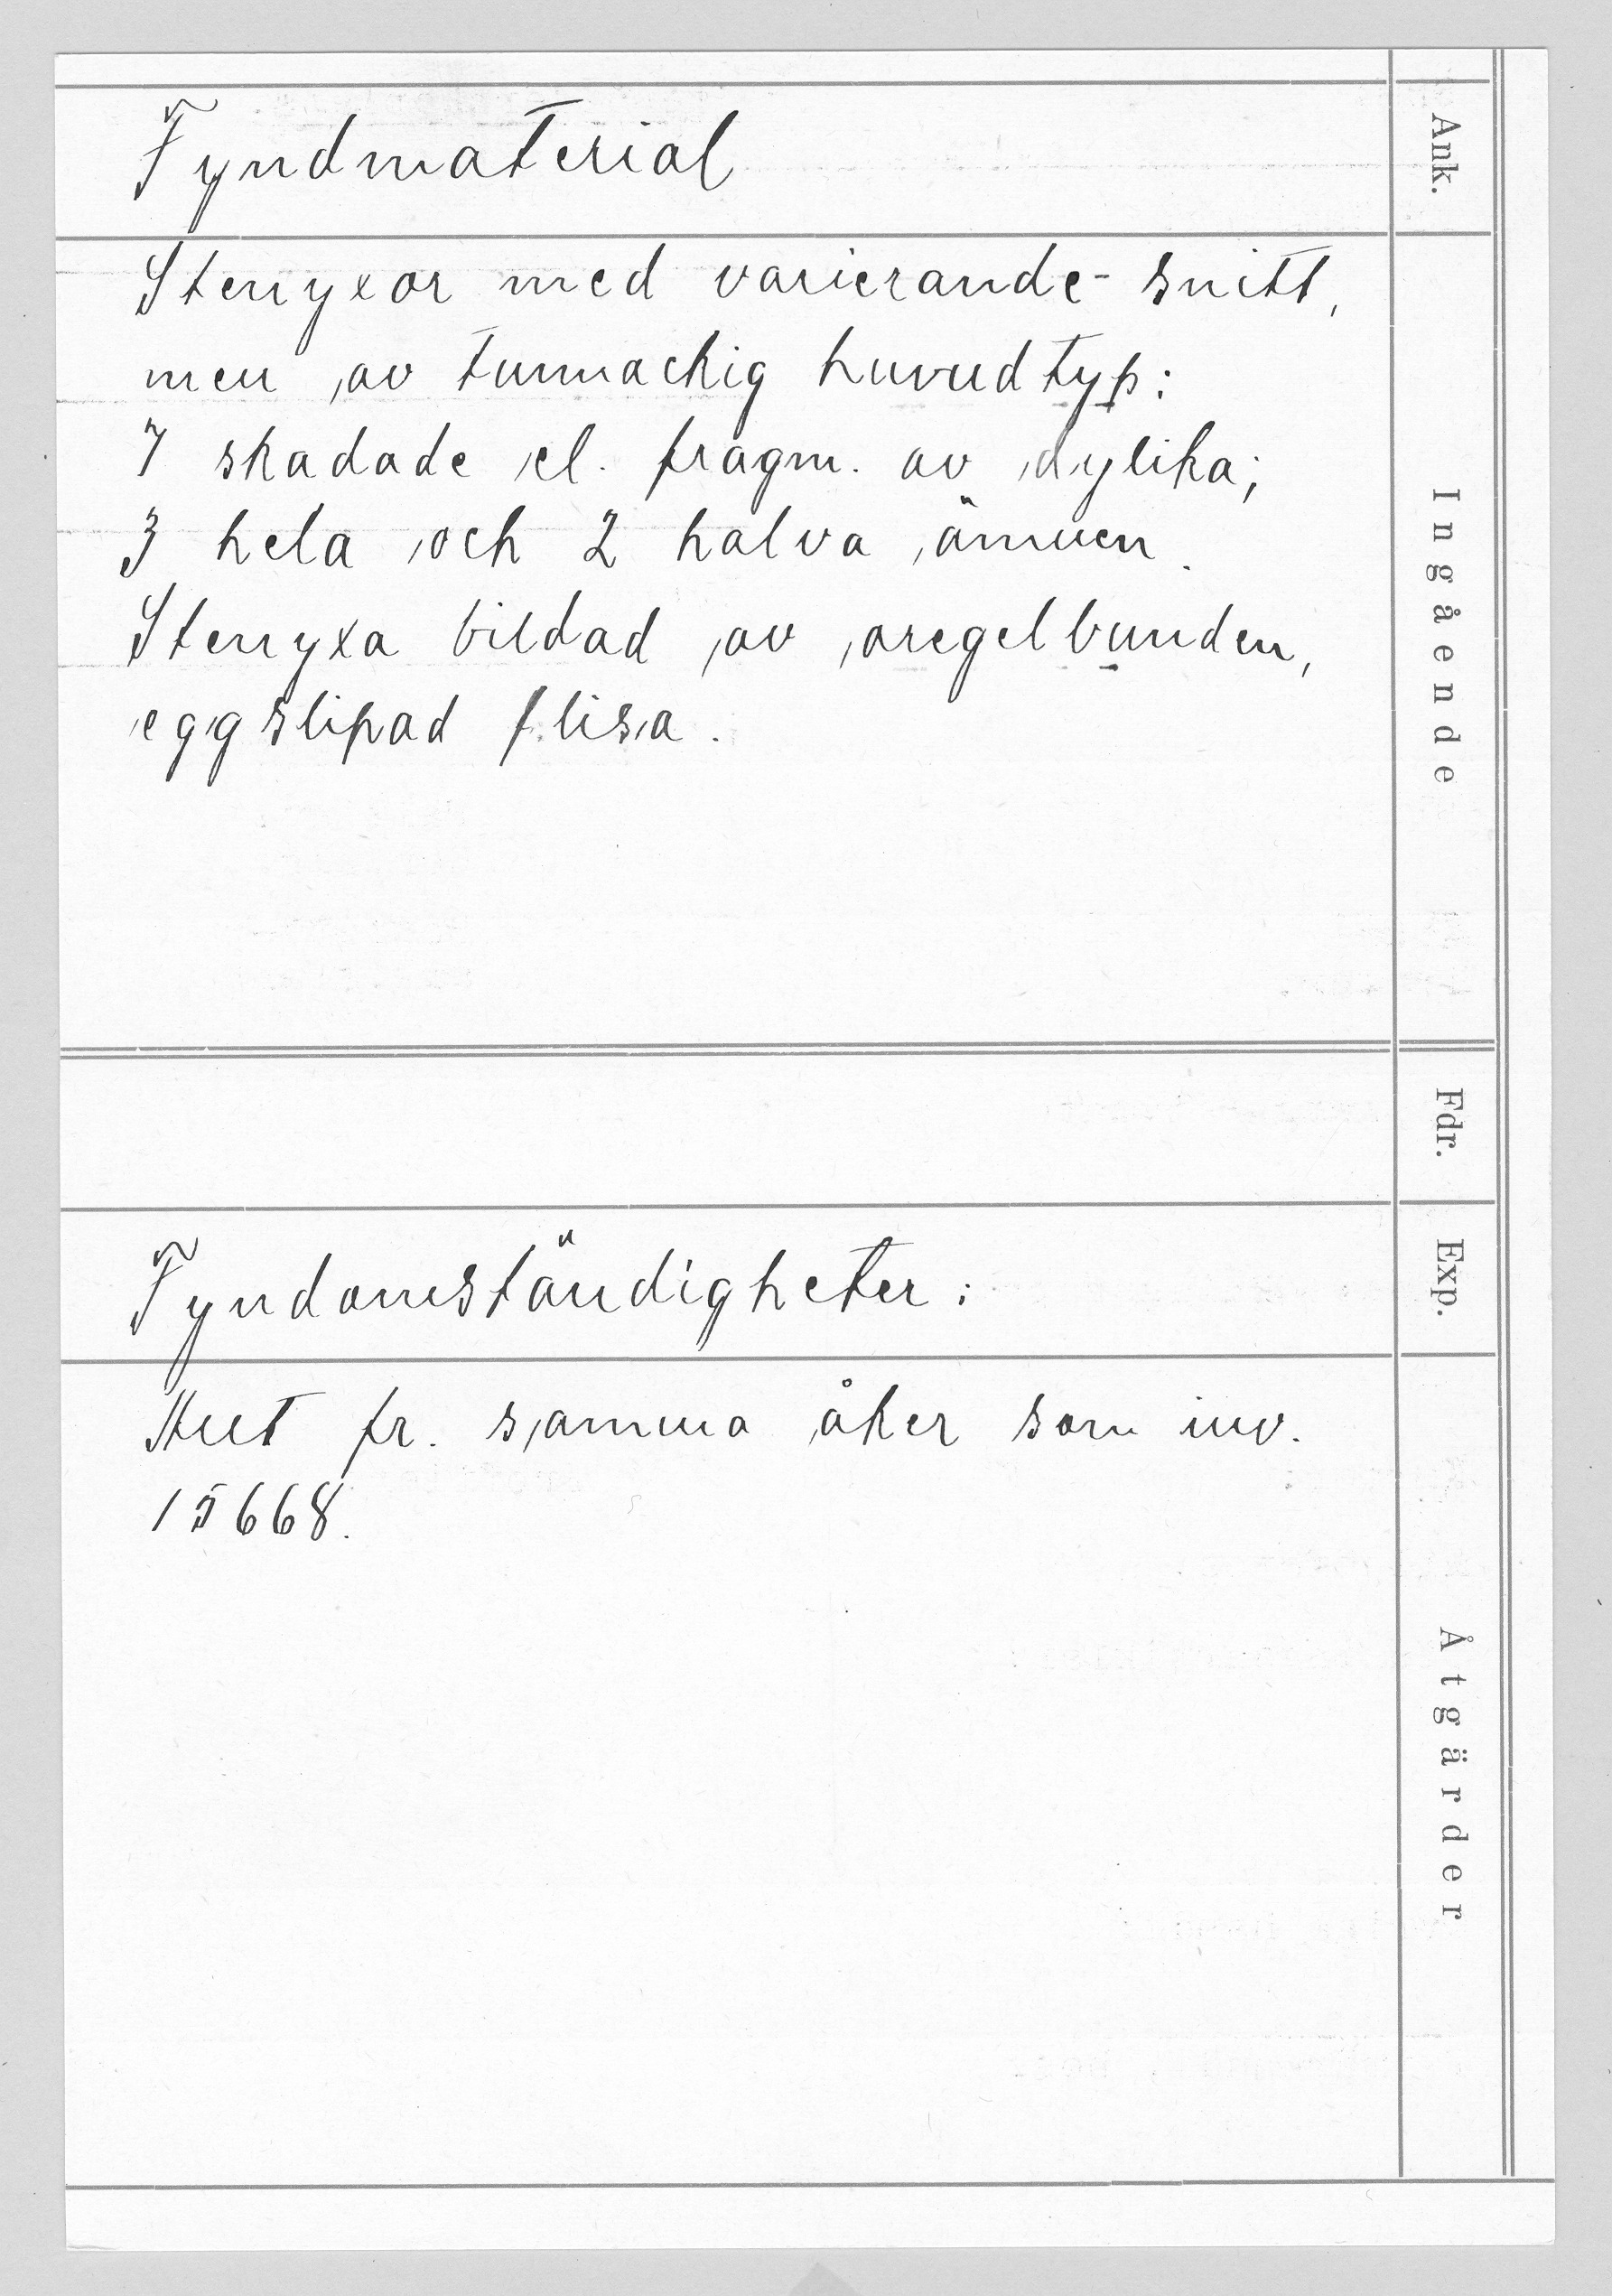 Fyndmaterial
Ank.
Stenyxor med varierande snitt,
men av tunnackig huvudtyp:
7 skadade el. fragm. av dylika;
3 hela och 2 halva ämnen.
Stenyxa bildad av oregelbunden,
eggslipad flisa.
Ingående
Fdr.
Fyndomständigheter:
Exp.
fr. samma åker som inv.
15668.
Åtgärder